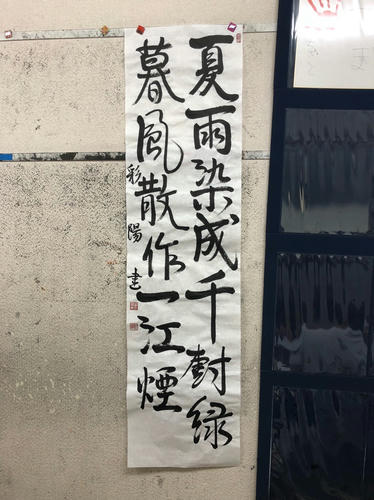 夏雨染成千樹緑
暮風散作一江煙
彩陽書